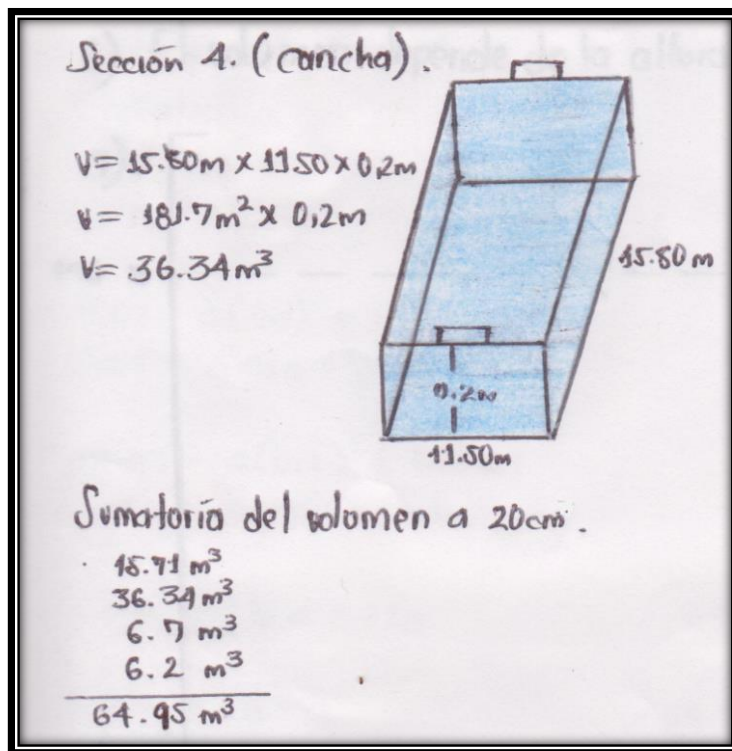 Sección 4. (cancha).
V= 15.80m x 11.50 x 0,2m
V= 181.7m² x 0,2m
V= 36.34m³
15.80m
0.2m
11.50m
Sumatoria del volumen a 20cm.
15.71 m³
36.34 m³
6.7 m³
6.2 m³
64.95 m³